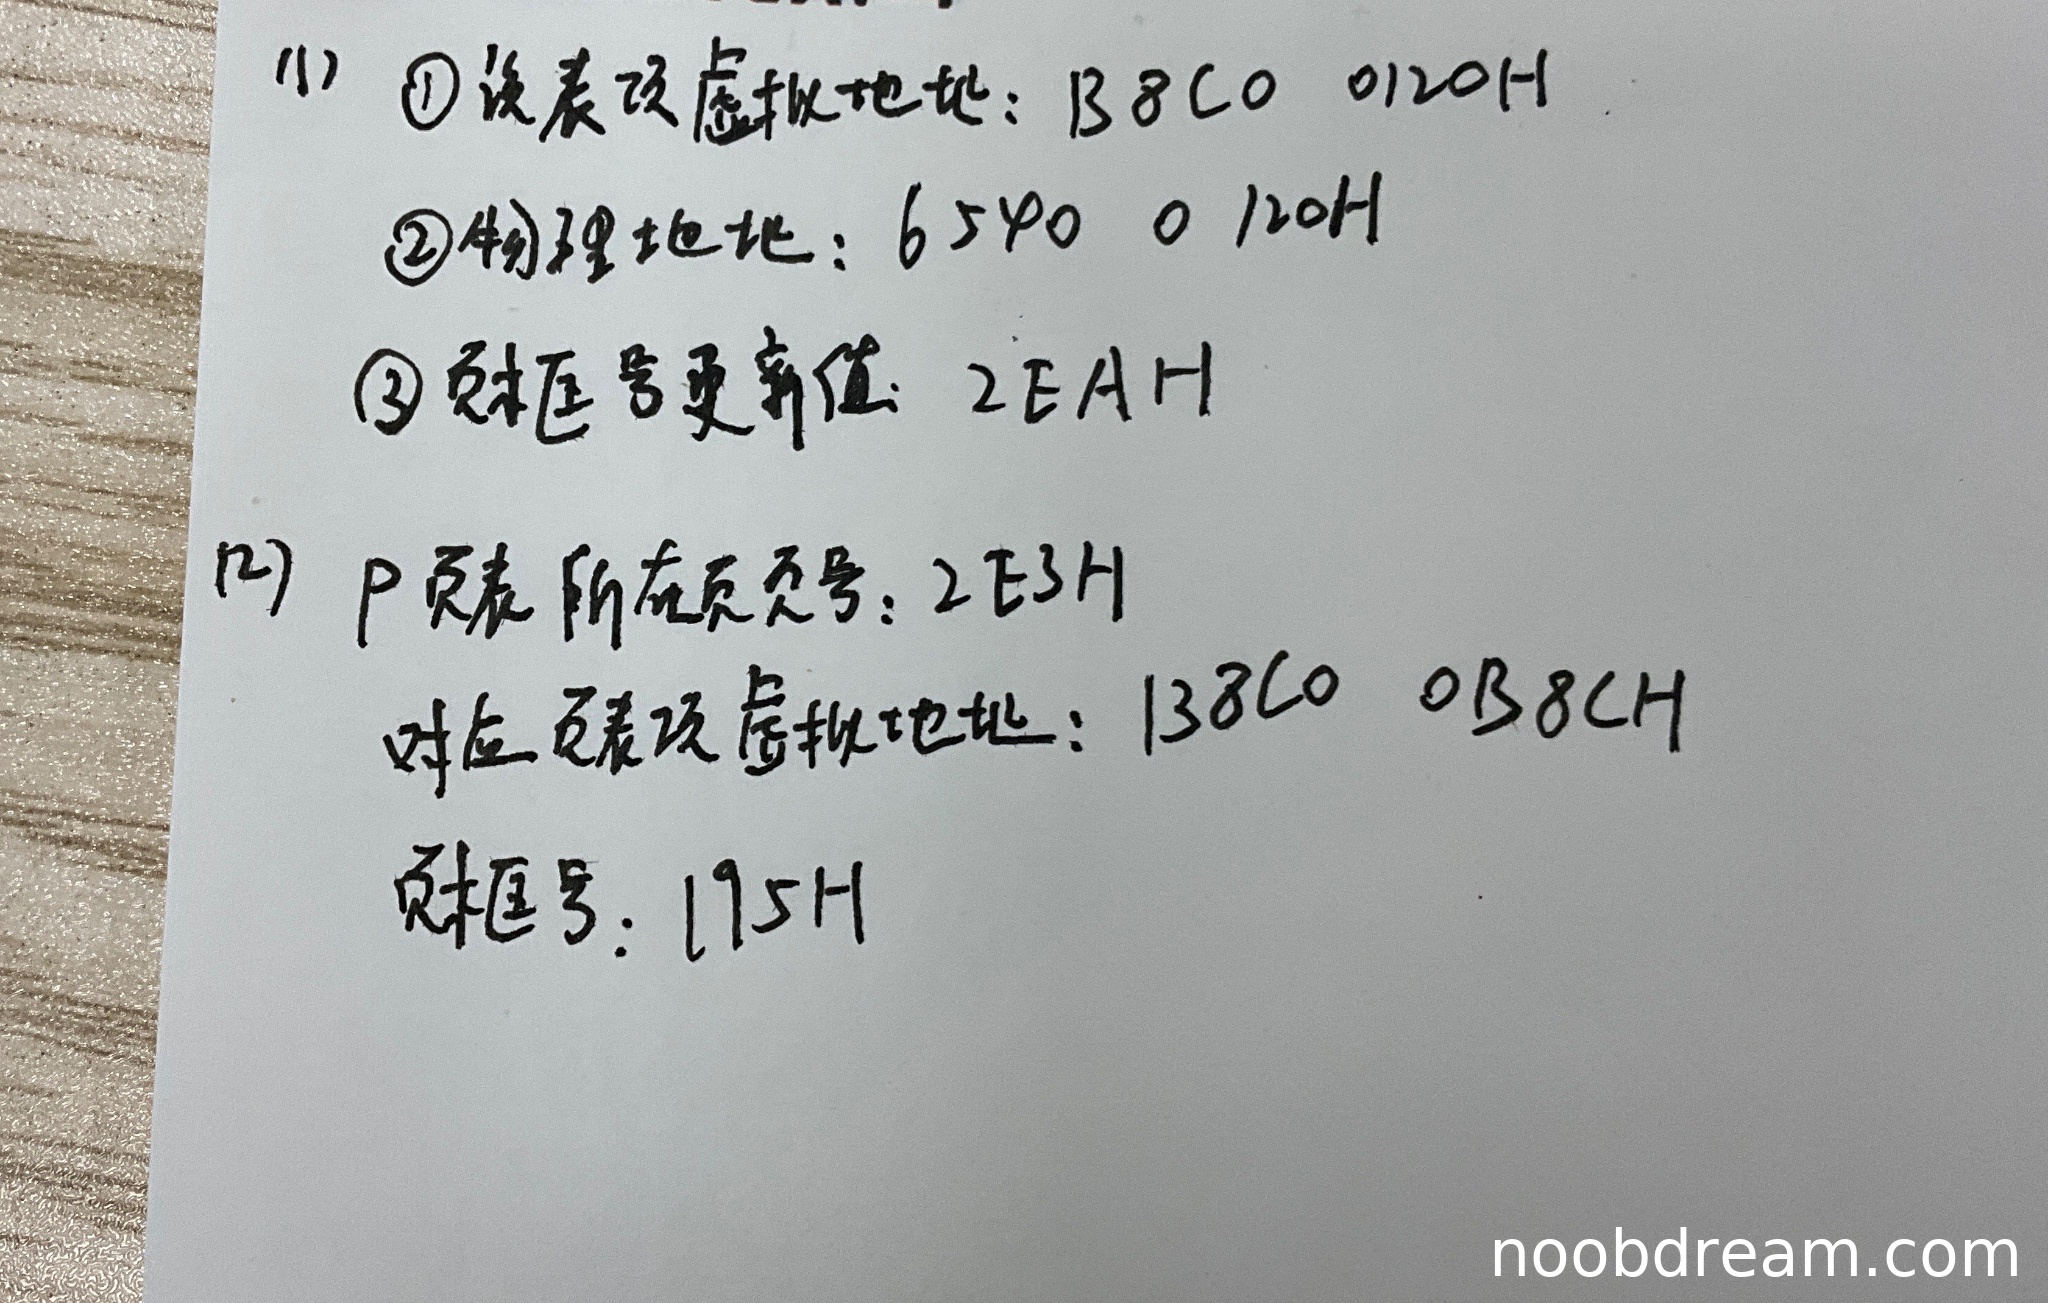 (1) ① 该表项虚拟地址：B8C0 0120H
② 物理地址：6540 0120H
③ 页框号更新值：2EAH
(2) P页表所在页页号：2E3H
对应页表项虚拟地址：B8C0 0B8CH
页框号：195H
noobdream.com